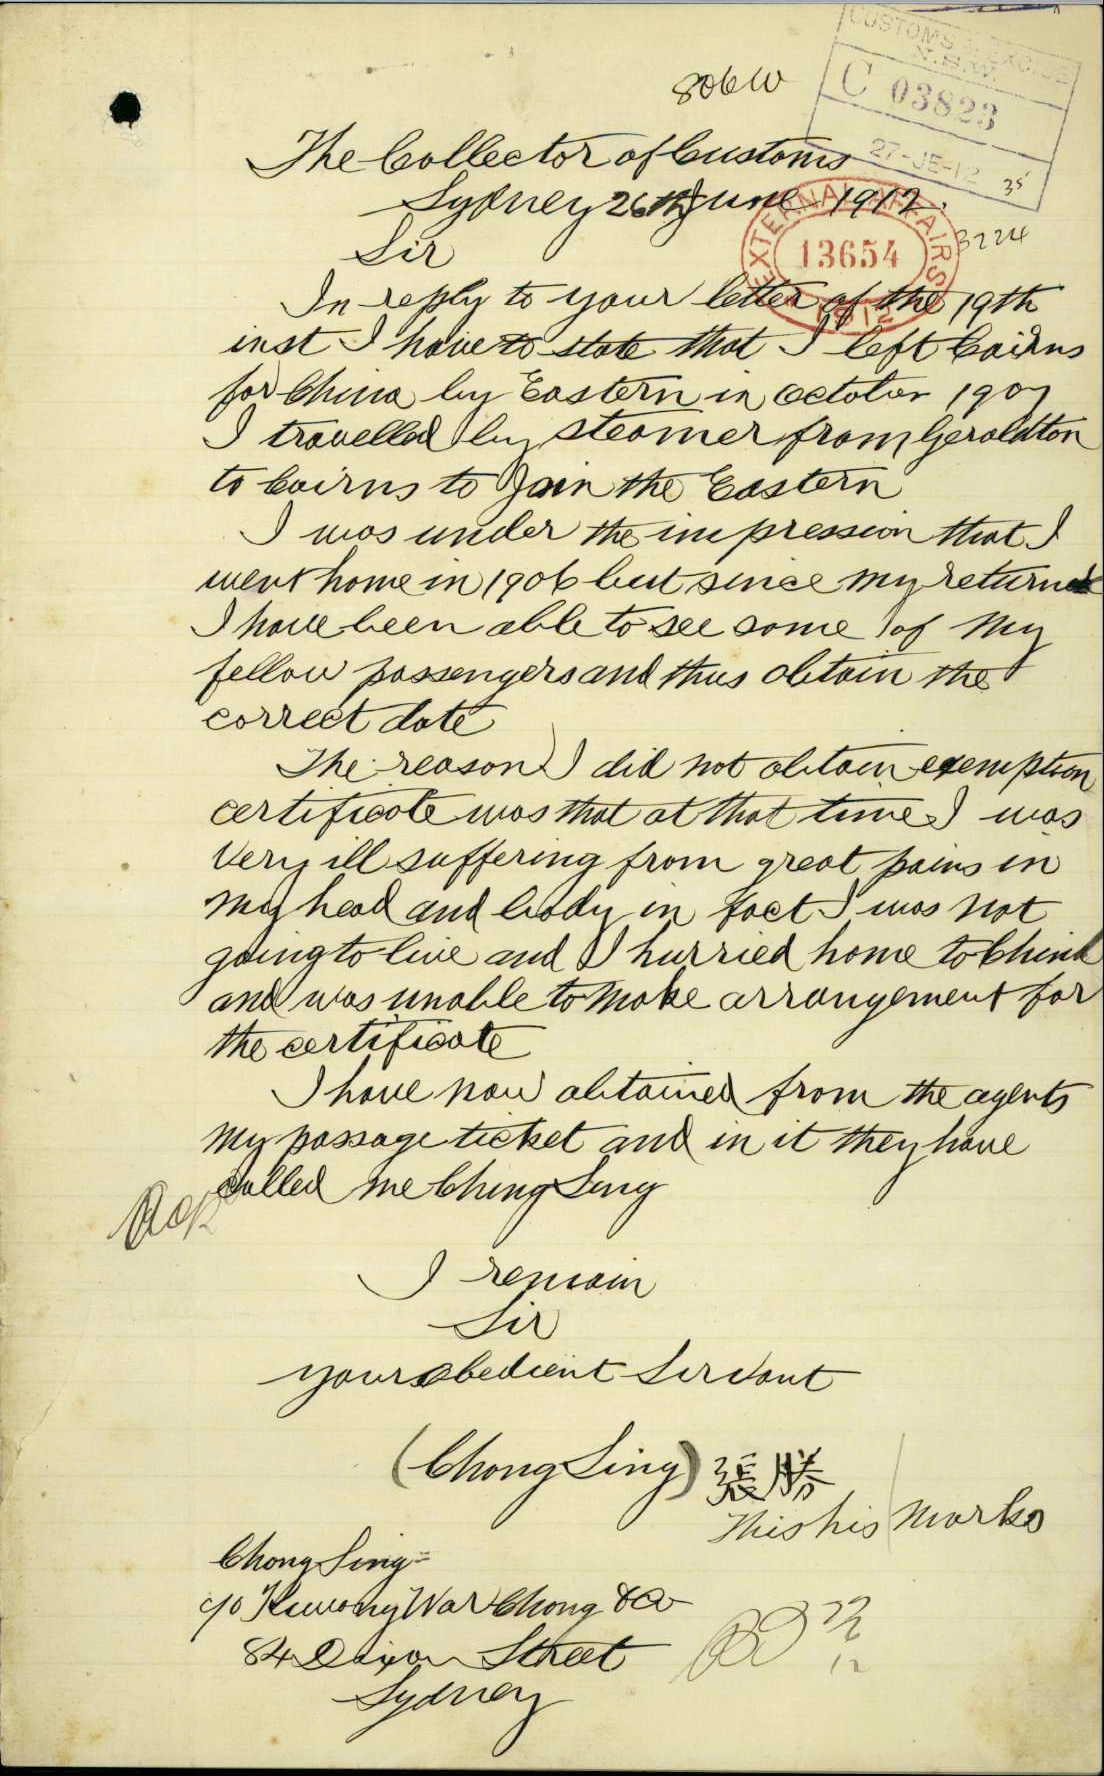 806 W
CUSTOMS & EXCISE
N.S.W.
C 03823
27-JE-12
35
The Collector of Customs
Sydney 26th June 1912.
EXTERNAL AFFAIRS
13654
1912
3224
Sir
In reply to your letter of the 19th
inst I have to state that I left Cairns
for China by Eastern in October 1907
I travelled by steamer from Geraldton
to Cairns to Join the Eastern
I was under the impression that I
went home in 1906 but since my return
I have been able to see some of my
fellow passengers and thus obtain the
correct date
The reason I did not obtain exemption
certificate was that at that time I was
Very ill suffering from great pains in
my head and body in fact I was not
going to live and I hurried home to China
and was unable to make arrangement for
the certificate
I have now obtained from the agents
my passage ticket and in it they have
called me Ching Seng
I remain
Sir
your obedient Servant
(Chong Sing) 張勝
This his marks
Chong Sing
c/o Kwong War Chong & Co
84 Dixon Street
Sydney